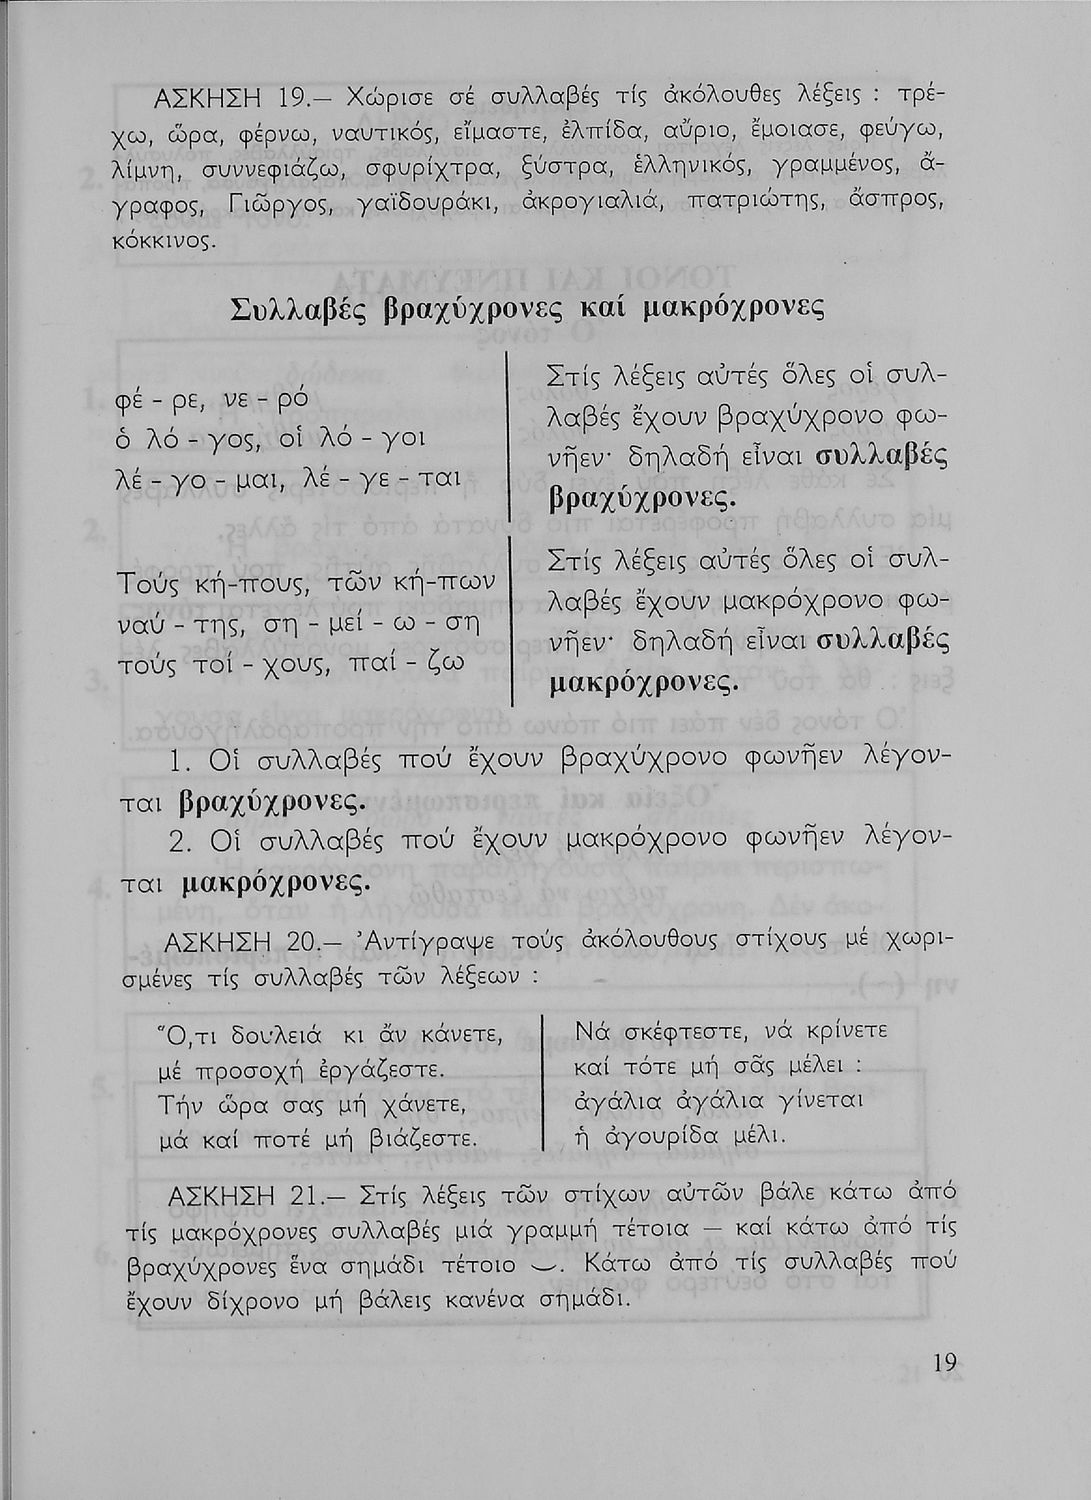 ΑΣΚΗΣΗ 19.— Χώρισε σέ συλλαβές τίς ἀκόλουθες λέξεις : τρέ-
χω, ὥρα, φέρνω, ναυτικός, εἴμαστε, ἐλπίδα, αὔριο, ἔμοιασε, φεύγω,
λίμνη, συννεφιάζω, σφυρίχτρα, ξύστρα, ἑλληνικός, γραμμένος, ἄ-
γραφος, Γιῶργος, γαϊδουράκι, ἀκρογιαλιά, πατριώτης, ἄσπρος,
κόκκινος.
Συλλαβές βραχύχρονες καί μακρόχρονες
φέ - ρε, νε - ρό
ὁ λό - γος, οἱ λό - γοι
λέ - γο - μαι, λέ - γε - ται
Στίς λέξεις αὐτές ὅλες οἱ συλ-
λαβές ἔχουν βραχύχρονο φω-
νῆεν· δηλαδή εἶναι συλλαβές
βραχύχρονες.
Τούς κή-πους, τῶν κή-πων
ναύ - της, ση - μεί - ω - ση
τούς τοί - χους, παί - ζω
Στίς λέξεις αὐτές ὅλες οἱ συλ-
λαβές ἔχουν μακρόχρονο φω-
νῆεν· δηλαδή εἶναι συλλαβές
μακρόχρονες.
1. Οἱ συλλαβές πού ἔχουν βραχύχρονο φωνῆεν λέγον-
ται βραχύχρονες.
2. Οἱ συλλαβές πού ἔχουν μακρόχρονο φωνῆεν λέγον-
ται μακρόχρονες.
ΑΣΚΗΣΗ 20.— Ἀντίγραψε τούς ἀκόλουθους στίχους μέ χωρι-
σμένες τίς συλλαβές τῶν λέξεων :
Ὅ,τι δουλειά κι ἄν κάνετε,
μέ προσοχή ἐργάζεστε.
Τήν ὥρα σας μή χάνετε,
μά καί ποτέ μή βιάζεστε.
Νά σκέφτεστε, νά κρίνετε
καί τότε μή σᾶς μέλει :
ἀγάλια ἀγάλια γίνεται
ἡ ἀγουρίδα μέλι.
ΑΣΚΗΣΗ 21.— Στίς λέξεις τῶν στίχων αὐτῶν βάλε κάτω ἀπό
τίς μακρόχρονες συλλαβές μιά γραμμή τέτοια — καί κάτω ἀπό τίς
βραχύχρονες ἕνα σημάδι τέτοιο ⏑. Κάτω ἀπό τίς συλλαβές πού
ἔχουν δίχρονο μή βάλεις κανένα σημάδι.
19